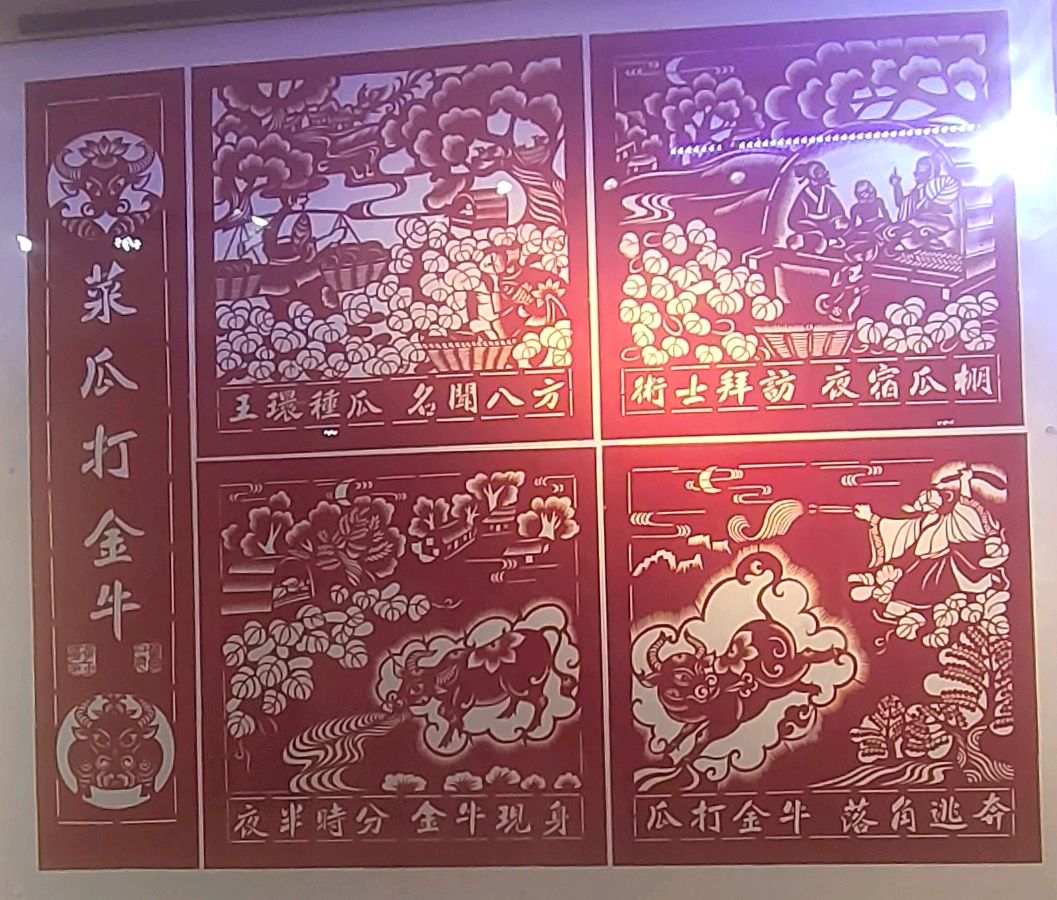 菜瓜打金牛
王環種瓜 名聞八方
術士拜訪 夜宿瓜棚
夜半時分 金牛現身
瓜打金牛 落角逃奔